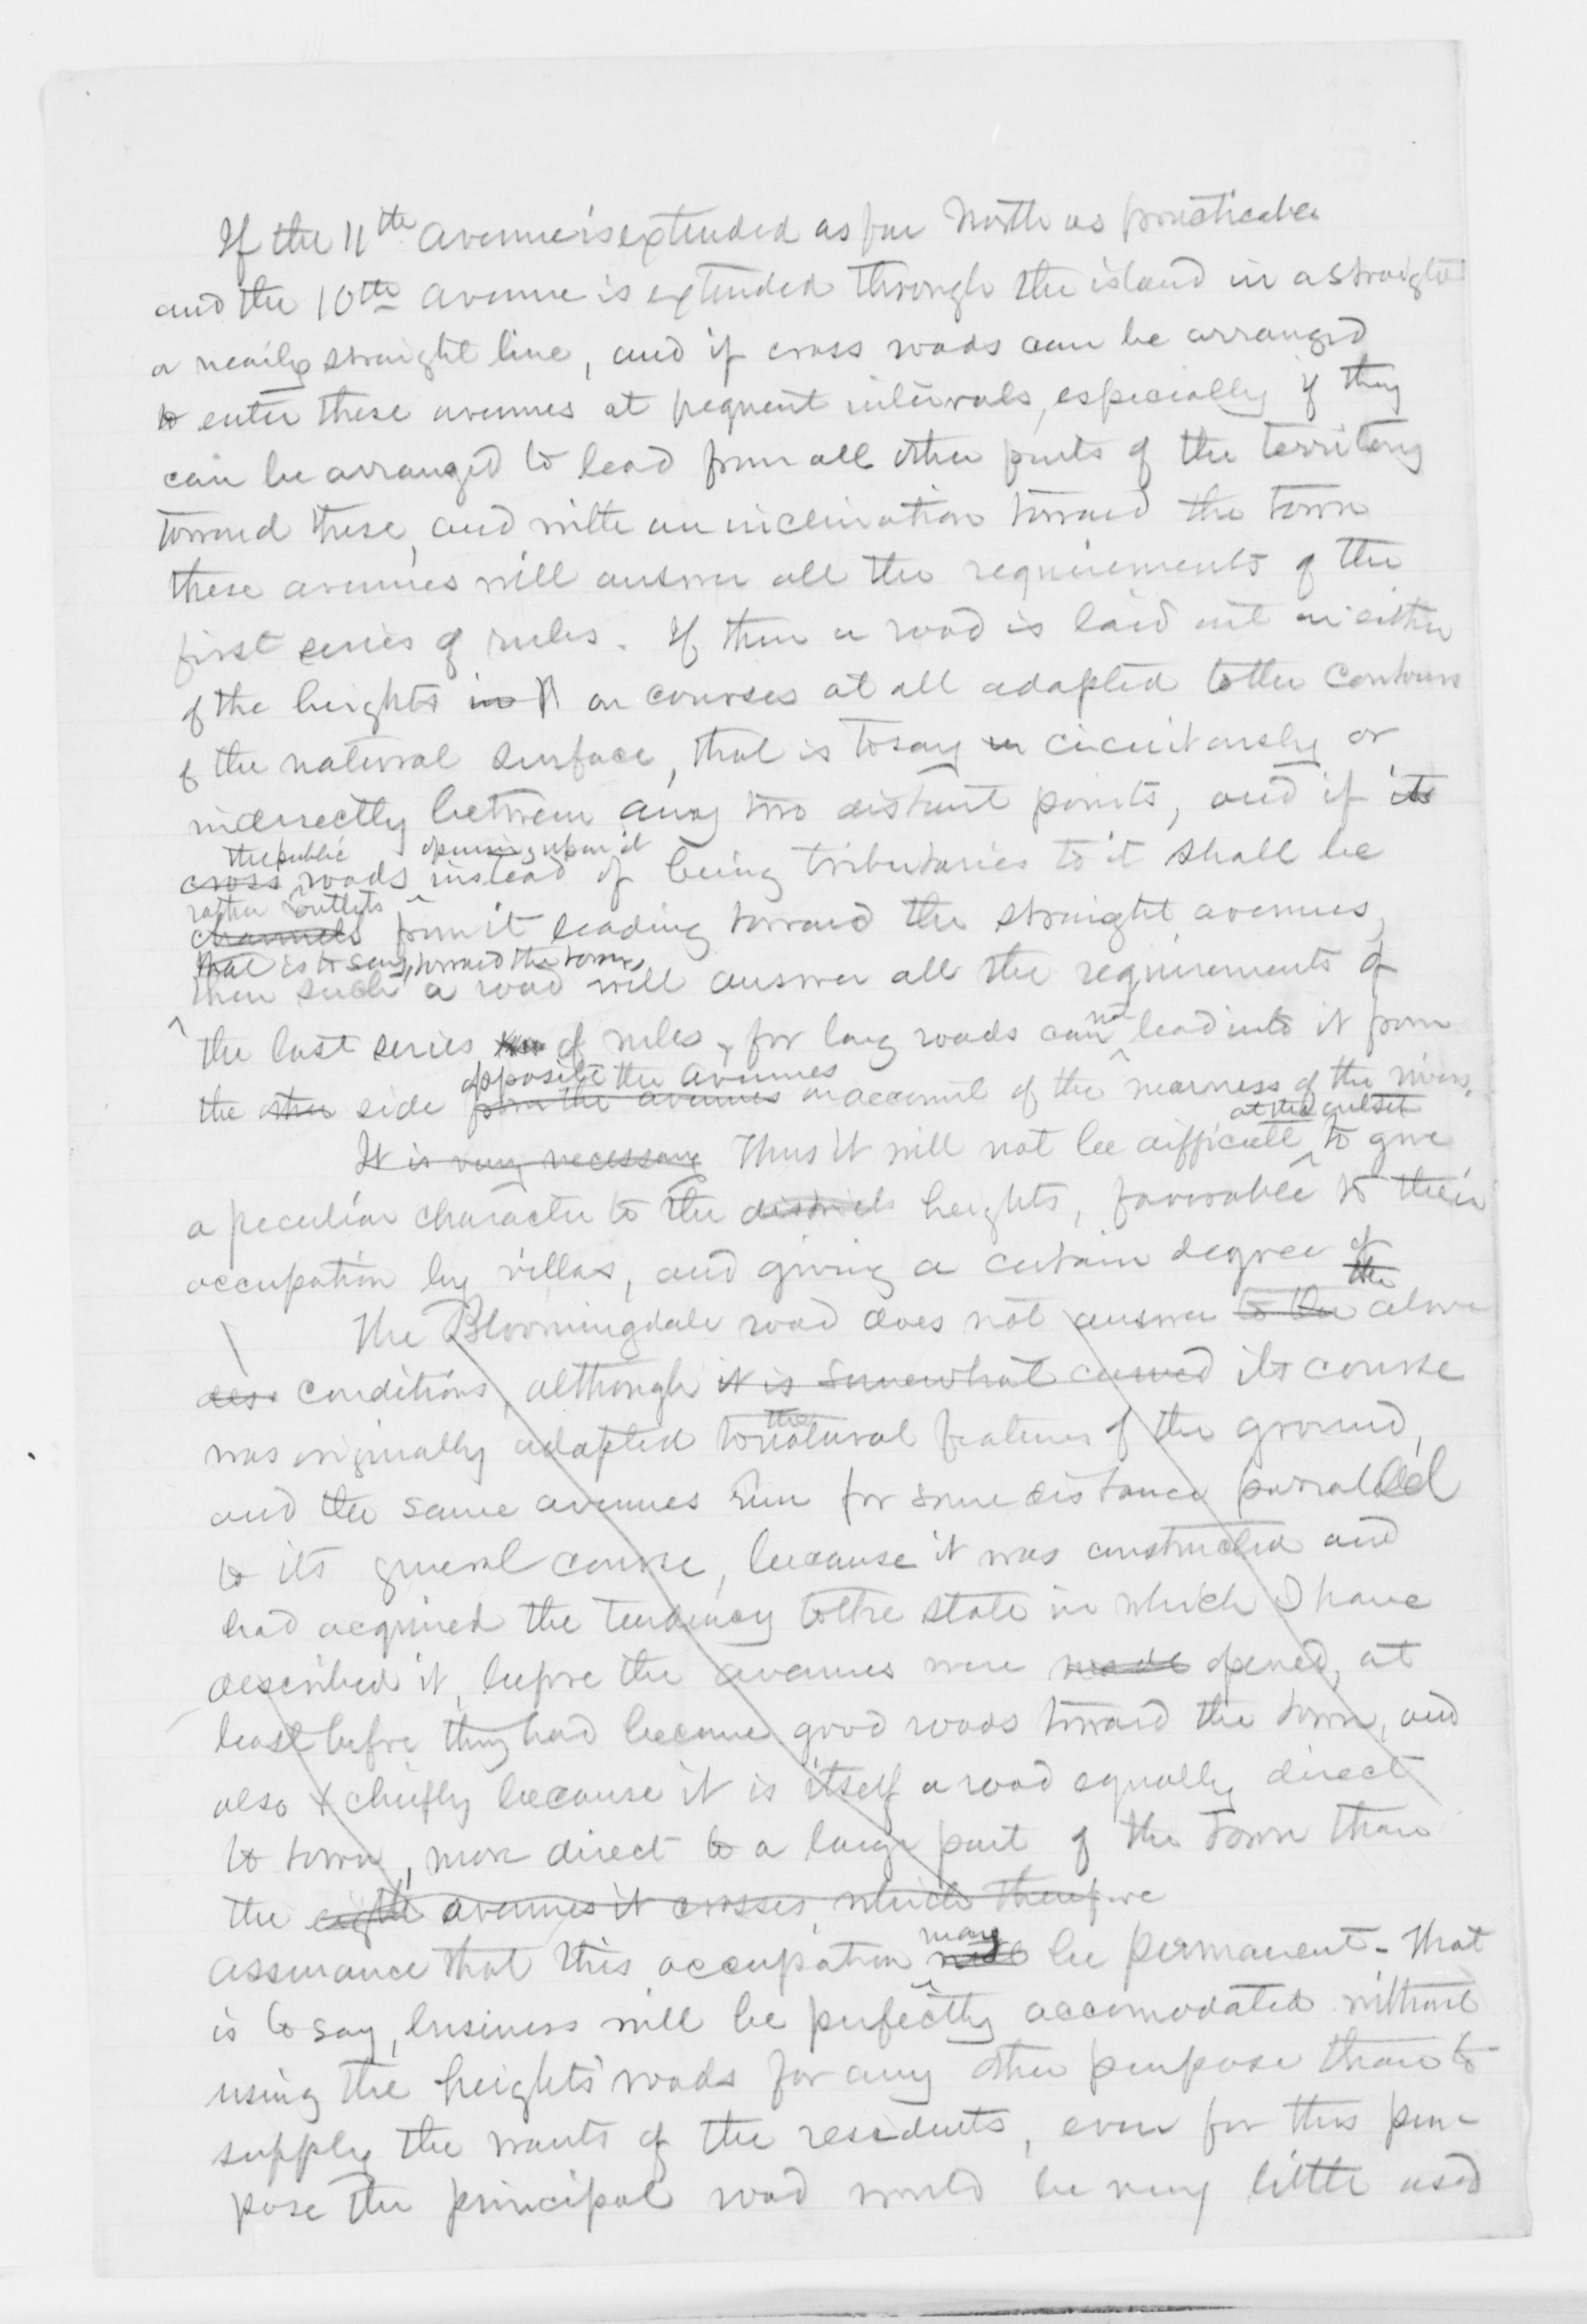 If the 11th Avenue is extended as far North as practicable
and the 10th avenue is extended through the island in a straight
a nearly straight line, and if cross roads can be arranged
to enter these avenues at frequent intervals, especially if they
can be arranged to lead from all other parts of the territory
toward these, and with an inclination toward the town
these avenues will answer all the requirements of the
first series of rules. If then a road is laid out on either
of the heights in on courses at all adapted to the contours
of the natural surface, that is to say in circuitously or
indirectly between any two distant points, and if its
the public opening upon it
cross roads instead of being tributaries to it shall be
rather outlets
channels from it leading toward the straight avenues,
that is to say, toward the town,
then such a road will answer all the requirements of
the last series of rules, for long roads can not lead into it from
opposite the avenues
the other side from the avenues on account of the nearness of the rivers.
at the outset
It is very necessary Thus it will not be difficult to give
a peculiar character to the districts heights, favorable to their
occupation by villas, and giving a certain degree of
the
The Bloomingdale road does not answer to the above
des conditions, although it is somewhat curved its course
was originally adapted to the natural features of the ground,
and the same avenues run for some distance parralled
to its general course, because it was constructed and
had acquired the tendency to the state in which I have
described it, before the avenues were made opened, at
least before they had become good roads toward the town, and
also & chiefly because it is itself a road equally direct
to town, more direct to a large part of the town than
the eighth avenues it crosses, which therefore
may
assurance that this occupation will be permanent. That
is to say, business will be perfectly accomodated without
using the heights roads for any other purpose than to
supply the wants of the residents, even for this pur-
pose the principal road would be very little used